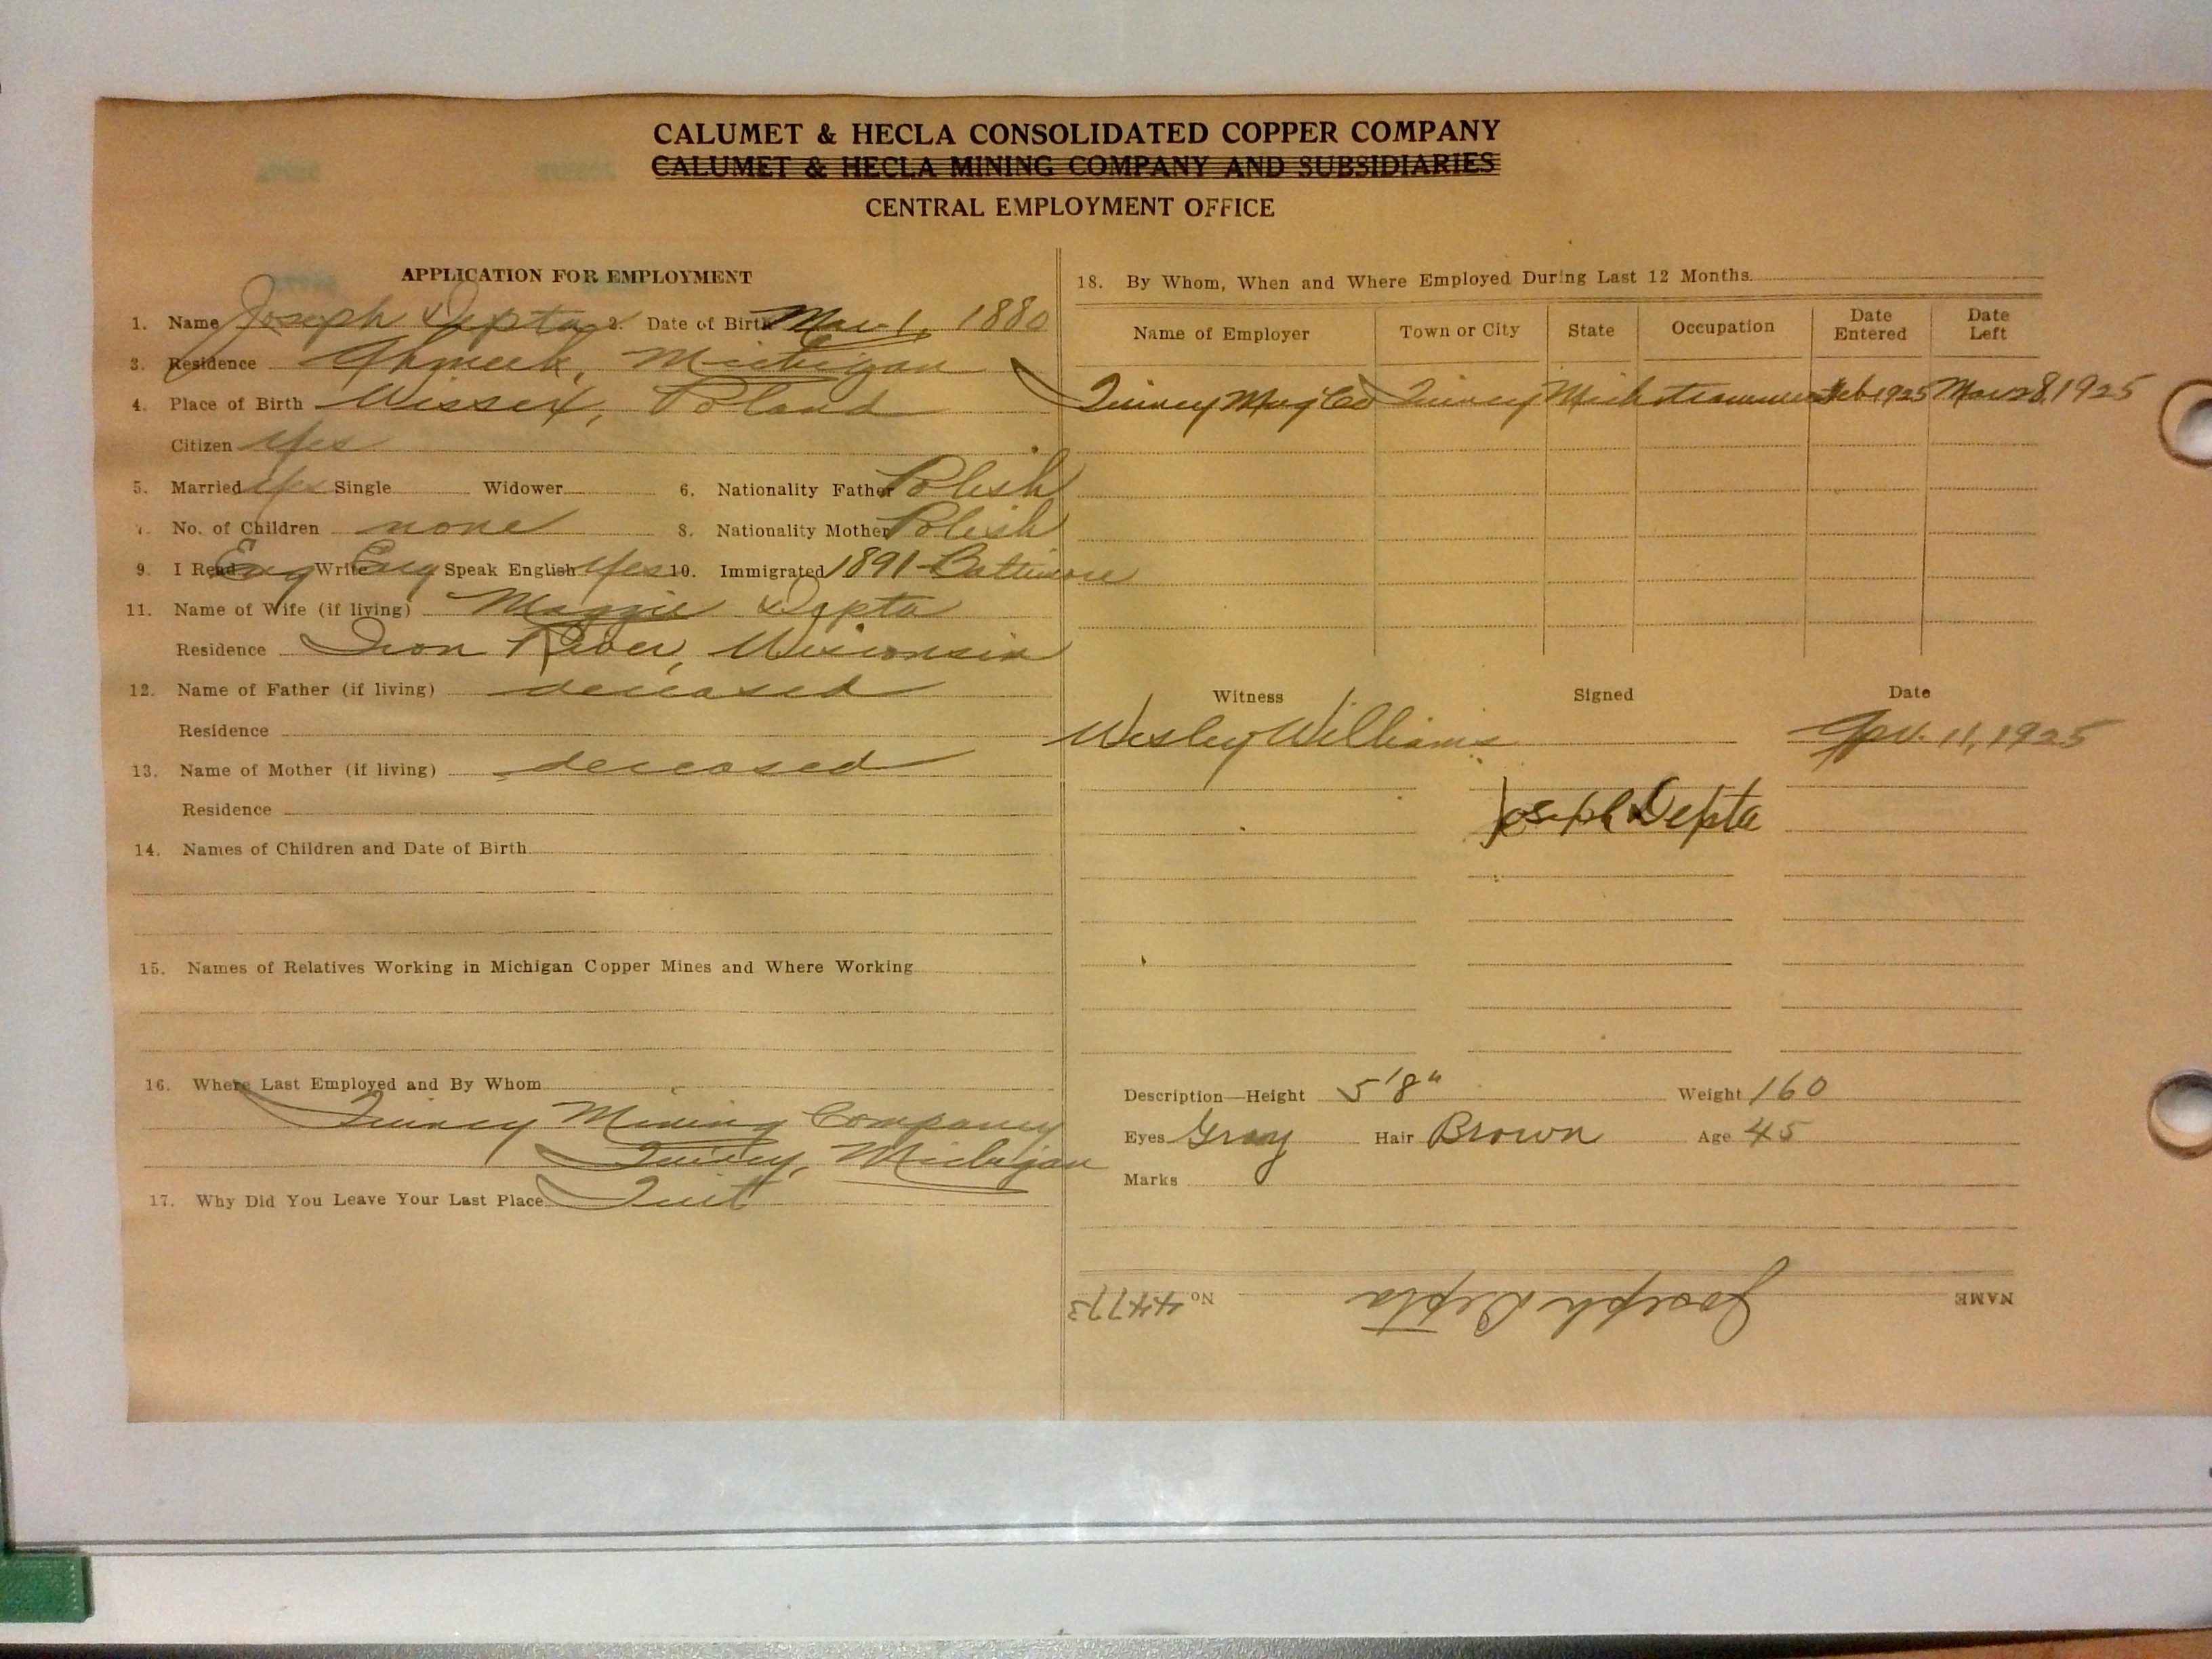 CALUMET & HECLA CONSOLIDATED COPPER COMPANY
CALUMET & HECLA MINING COMPANY AND SUBSIDIARIES
CENTRAL EMPLOYMENT OFFICE
APPLICATION FOR EMPLOYMENT
1. Name Joseph Depta 2. Date of Birth Mar. 1, 1880
3. Residence Ahmeek, Michigan
4. Place of Birth Poland
Citizen Yes
5. Married Yes Single Widower 6. Nationality Father Polish
7. No. of Children none 8. Nationality Mother Polish
9. I Read Eng Write Eng Speak English Yes 10. Immigrated 1891-Baltimore
11. Name of Wife (if living) Maggie Depta
Residence Iron River, Wisconsin
12. Name of Father (if living) deceased
Residence
13. Name of Mother (if living) deceased
Residence
14. Names of Children and Date of Birth
15. Names of Relatives Working in Michigan Copper Mines and Where Working
16. Where Last Employed and By Whom
Quincy Mining Company
Quincy, Michigan
17. Why Did You Leave Your Last Place Quit
18. By Whom, When and Where Employed During Last 12 Months
Name of Employer Town or City State Occupation Date Entered Date Left
Quincy Mng Co Quincy Mich trammer Feb 1925 Mar 28, 1925
Witness Signed Date
Wesley Williams Apr. 11, 1925
Joseph Depta
Description—Height 5'8" Weight 160
Eyes Gray Hair Brown Age 45
Marks
NAME Joseph Depta No. 44773